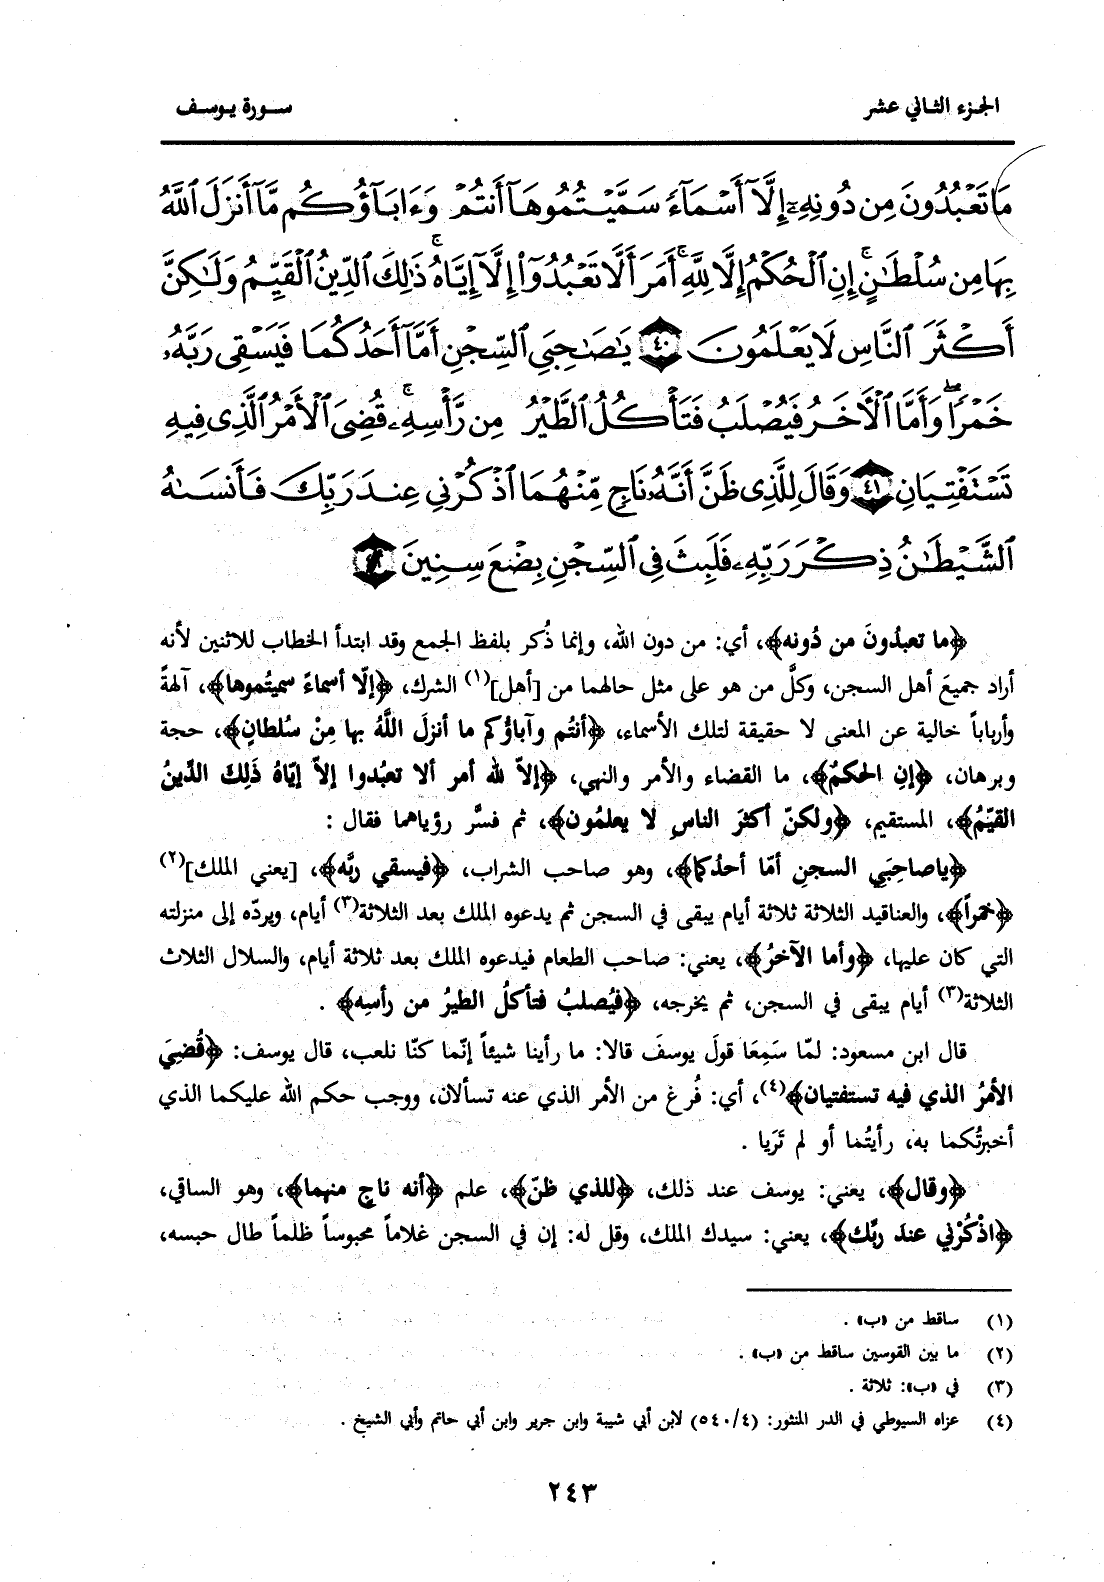 الجزء الثاني عشر
سورة يوسف
مَا تَعْبُدُونَ مِن دُونِهِۦٓ إِلَّآ أَسْمَآءً سَمَّيْتُمُوهَآ أَنتُمْ وَءَابَآؤُكُم مَّآ أَنزَلَ ٱللَّهُ
بِهَا مِن سُلْطَٰنٍ ۚ إِنِ ٱلْحُكْمُ إِلَّا لِلَّهِ ۚ أَمَرَ أَلَّا تَعْبُدُوٓا۟ إِلَّآ إِيَّاهُ ۚ ذَٰلِكَ ٱلدِّينُ ٱلْقَيِّمُ وَلَٰكِنَّ
أَكْثَرَ ٱلنَّاسِ لَا يَعْلَمُونَ ٤٠ يَٰصَٰحِبَىِ ٱلسِّجْنِ أَمَّآ أَحَدُكُمَا فَيَسْقِى رَبَّهُۥ
خَمْرًا ۖ وَأَمَّا ٱلْءَاخَرُ فَيُصْلَبُ فَتَأْكُلُ ٱلطَّيْرُ مِن رَّأْسِهِۦ ۚ قُضِىَ ٱلْأَمْرُ ٱلَّذِى فِيهِ
تَسْتَفْتِيَانِ ٤١ وَقَالَ لِلَّذِى ظَنَّ أَنَّهُۥ نَاجٍ مِّنْهُمَا ٱذْكُرْنِى عِندَ رَبِّكَ فَأَنسَىٰهُ
ٱلشَّيْطَٰنُ ذِكْرَ رَبِّهِۦ فَلَبِثَ فِى ٱلسِّجْنِ بِضْعَ سِنِينَ ٤٢
﴿ما تعبدُونَ من دُونه﴾، أي: من دون الله، وإنما ذُكر بلفظ الجمع وقد ابتدأ الخطاب للاثنين لأنه
أراد جميعَ أهل السجن، وكلَّ من هو على مثل حالهما من [أهل](١) الشرك، ﴿إلّا أسماءً سميتُموها﴾، آلهةً
وأرباباً خالية عن المعنى لا حقيقة لتلك الأسماء، ﴿أنتُم وآباؤكم ما أنزلَ اللَّهُ بها مِنْ سُلطانٍ﴾، حجة
وبرهان، ﴿إنِ الحكمُ﴾، ما القضاء والأمر والنهي، ﴿إلاّ لله أمر ألا تعبُدوا إلاّ إيّاهُ ذَلِكَ الدِّينُ
القيّمُ﴾، المستقيم، ﴿ولكنّ أكثرَ الناسِ لا يعلمُون﴾، ثم فسَّر رؤياهما فقال :
﴿ياصاحِبَي السجنِ أمّا أحدُكما﴾، وهو صاحب الشراب، ﴿فيسقي ربَّه﴾، [يعني الملك](٢)
﴿خمراً﴾، والعناقيد الثلاثة ثلاثة أيام يبقى في السجن ثم يدعوه الملك بعد الثلاثة(٣) أيام، ويردّه إلى منزلته
التي كان عليها، ﴿وأما الآخرُ﴾، يعني: صاحب الطعام فيدعوه الملك بعد ثلاثة أيام، والسلال الثلاث
الثلاثة(٣) أيام يبقى في السجن، ثم يخرجه، ﴿فيُصلبُ فتأكلُ الطيرُ من رأسِه﴾ .
قال ابن مسعود: لمّا سَمِعَا قولَ يوسفَ قالا: ما رأينا شيئاً إنّما كنّا نلعب، قال يوسف: ﴿قُضيَ
الأمرُ الذي فيه تستفتيان﴾(٤)، أي: فُرغ من الأمر الذي عنه تسألان، ووجب حكم الله عليكما الذي
أخبرتُكما به، رأيتُما أو لم تَرَيا .
﴿وقال﴾، يعني: يوسف عند ذلك، ﴿للذي ظنّ﴾، علم ﴿أنه ناجٍ منهما﴾، وهو الساقي،
﴿اذْكُرْني عندَ ربِّك﴾، يعني: سيدك الملك، وقل له: إن في السجن غلاماً محبوساً ظلماً طال حبسه،
(١) ساقط من «ب» .
(٢) ما بين القوسين ساقط من «ب» .
(٣) في «ب»: ثلاثة .
(٤) عزاه السيوطي في الدر المنثور: (٤/٥٤٠) لابن أبي شيبة وابن جرير وابن أبي حاتم وأبي الشيخ .
٢٤٣